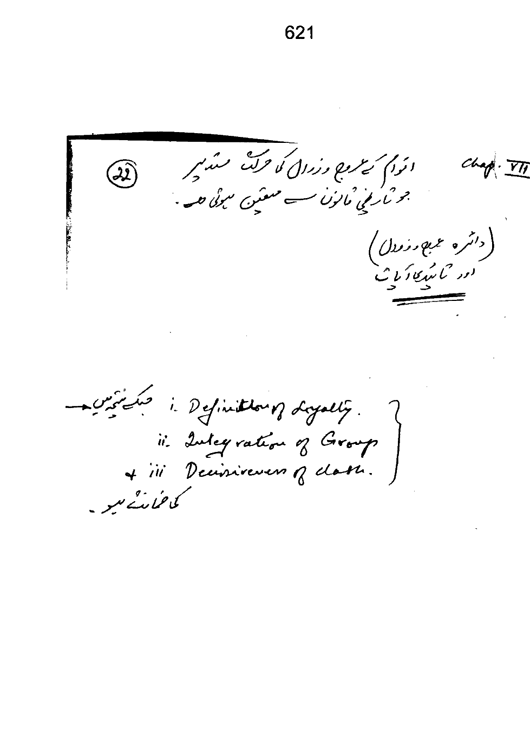 621
Chap. VII اقوام کے عروج و زوال کا حرکت مستدیر
22
جو تاریخی قانون سے متعین ہوتی ہے۔
(دائرہ عروج و زوال)
اور تائیدی آیات
جسکے نتیجہ میں → i. Definition of Loyalty.
ii. Integration of Group
& iii Decisiveness of clash.
کی ضمانت ہو۔